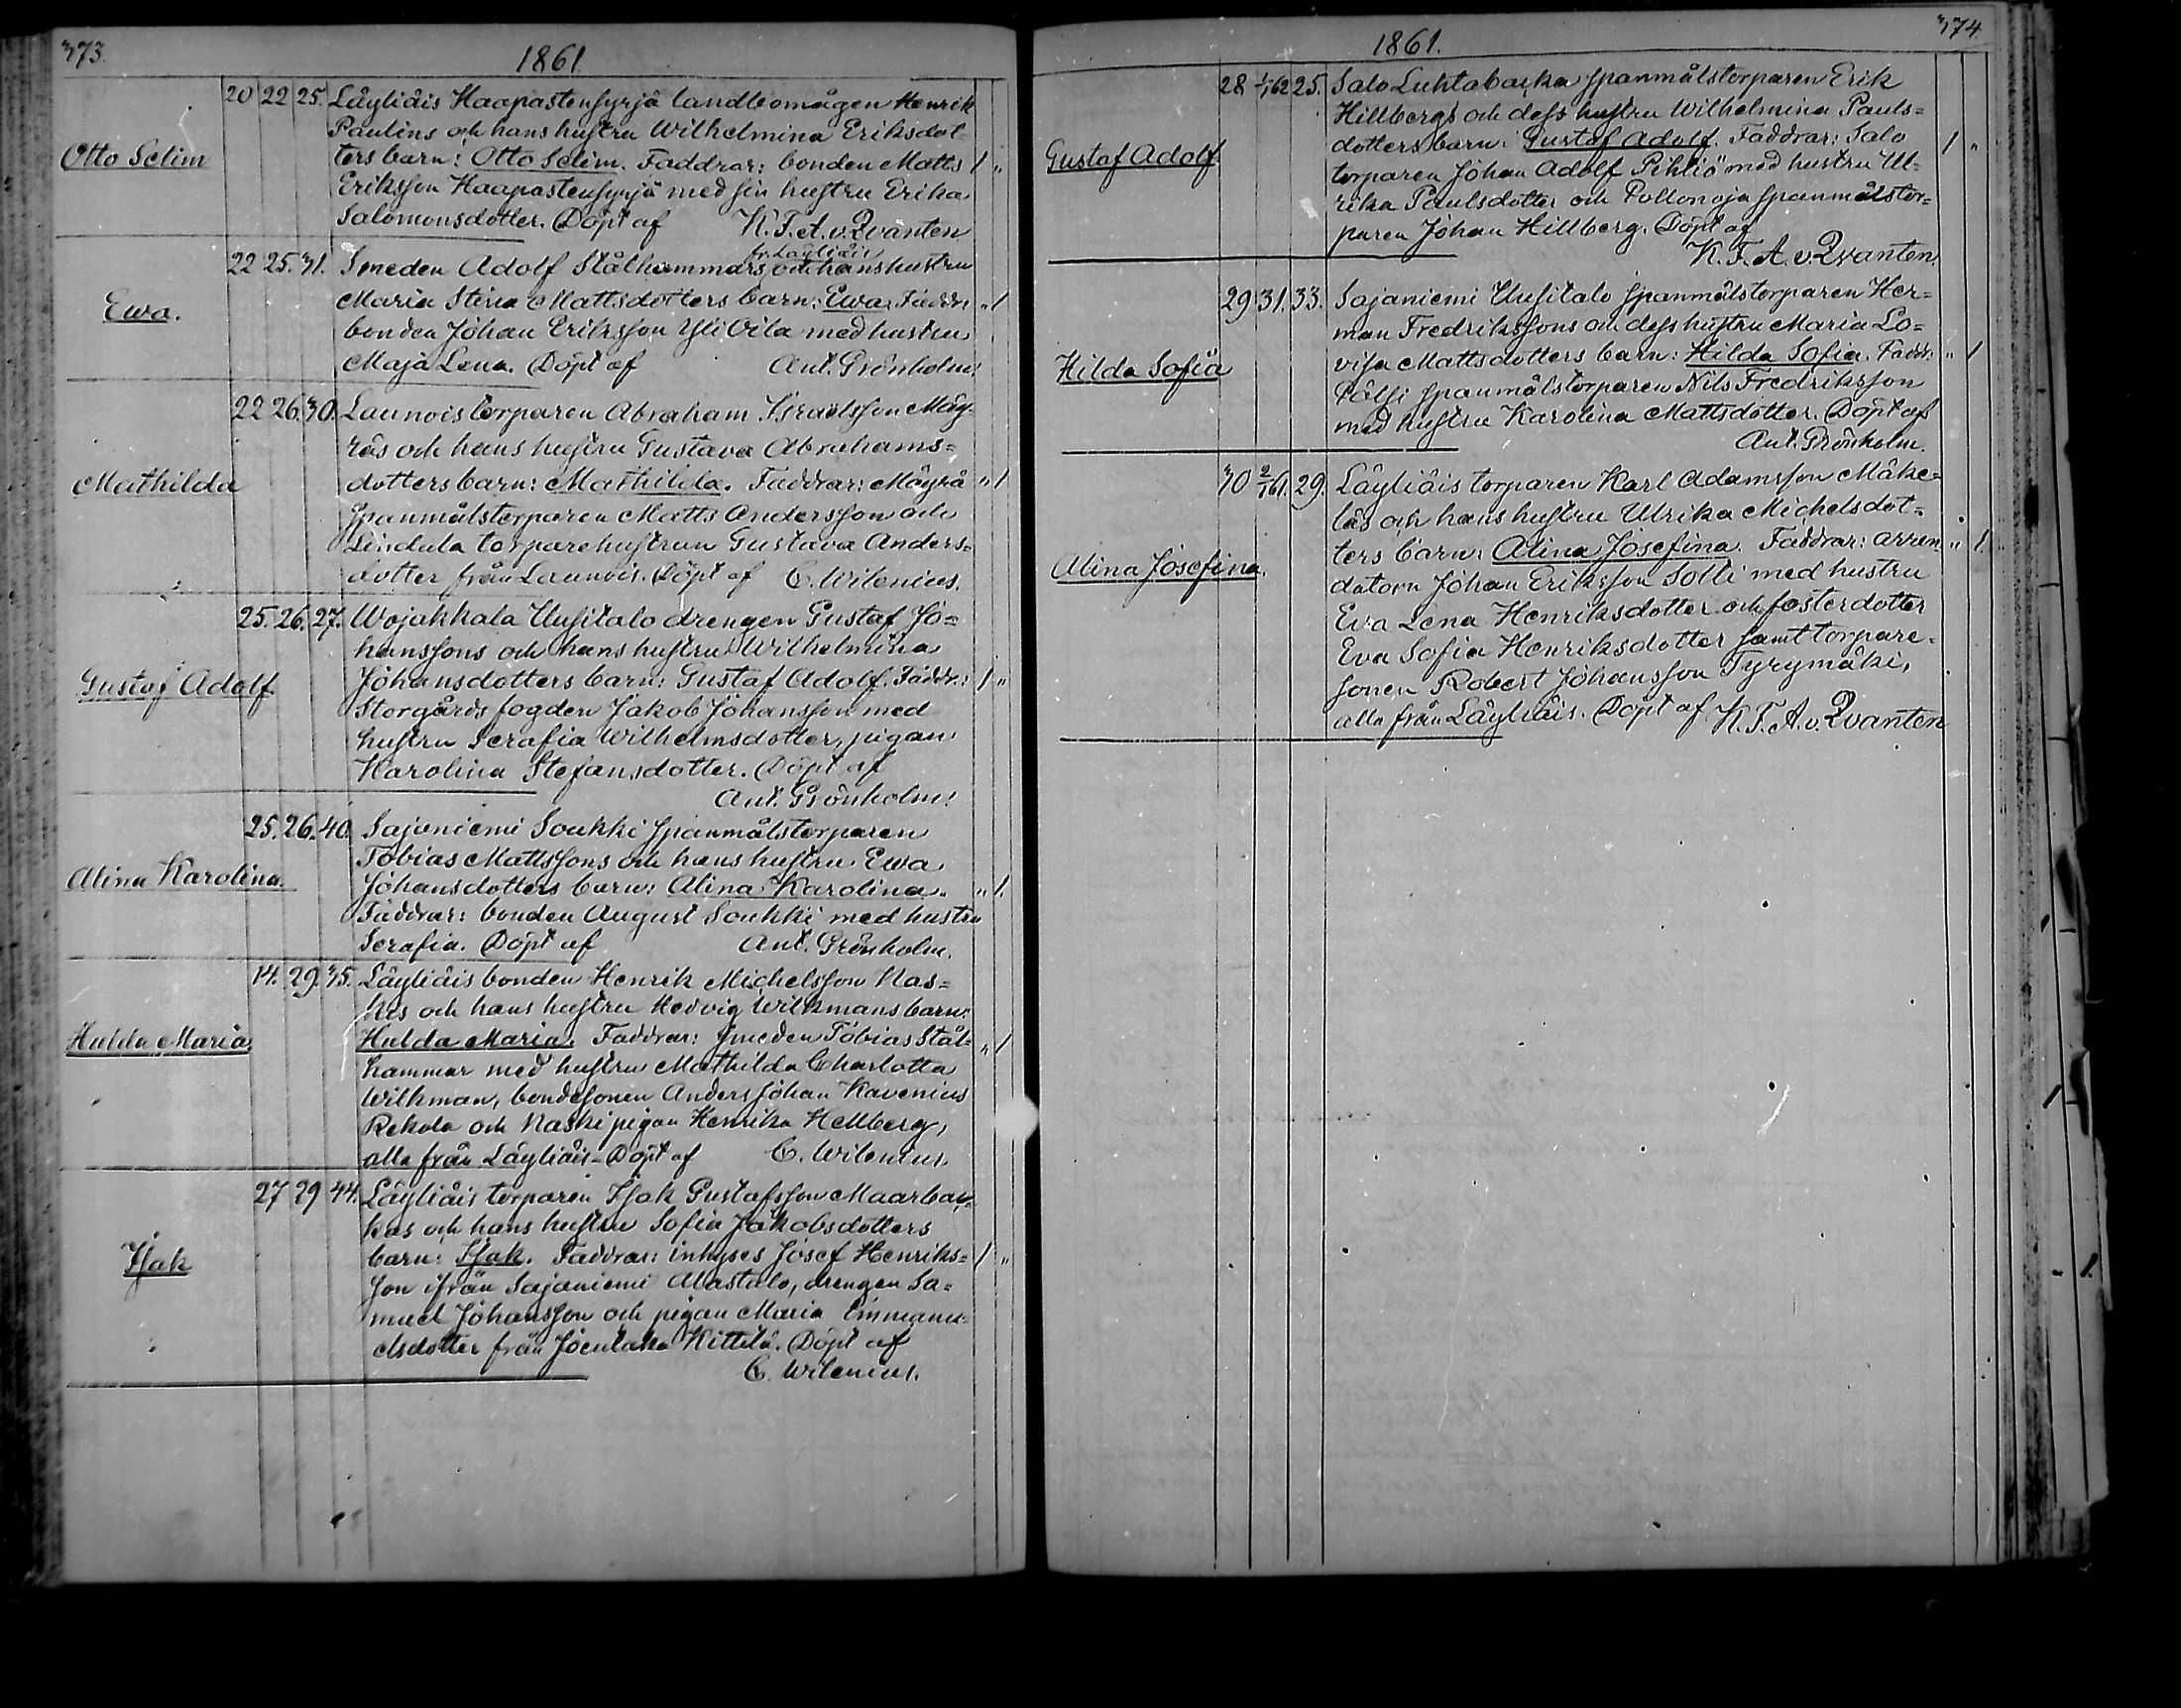 373.
1861
Otto Selim
20 22 25. Läyliäis Haapastensyrjä landbomågen Henrik
Paulins och hans hustru Wilhelmina Eriksdot-
ters barn: Otto Selim. Faddrar: bonden Matts 1 "
Eriksson Haapastensyrjä med sin hustru Erika
Salomonsdotter. Döpt af K. F. A. v. Qvanten
fr. Läyliäis
Ewa.
22 25. 31. Smeden Adolf Stålhammars och hans hustru
Maria Stina Mattsdotters barn: Ewa. Faddr. " 1
bonden Johan Eriksson Yli Oila med hustru
Maja Lena. Döpt af Ant. Grönholm.
Mathilda
22 26. 30. Launois torparen Abraham Israelsson Mäy-
räs och hans hustru Gustava Abrahams=
dotters barn: Mathilda. Faddrar: Mäyrä " 1
spanmålstorparen Matts Andersson och
Lindula torparehustrun Gustava Anders=
dotter från Launois. Döpt af C. Wilenius.
Gustaf Adolf
25. 26. 27. Wojakkala Uusitalo drengen Gustaf Jo=
hanssons och hans hustru Wilhelmina
Johansdotters barn: Gustaf Adolf. Faddr.: 1 "
Storgårds fogden Jakob Johansson med
hustru Serafia Wilhelmsdotter, pigan
Karolina Stefansdotter. Döpt af
Ant. Grönholm.
Alina Karolina.
25. 26. 40. Sajaniemi Soukki spanmålstorparen
Tobias Mattssons och hans hustru Ewa
Johansdotters barn: Alina Karolina. " 1.
Faddrar: bonden August Soukki med hustru
Serafia. Döpt af Ant. Grönholm.
Hulda Maria
14. 29. 35. Läyliäis bonden Henrik Michelsson Nas=
kis och hans hustru Hedvig Wilkmans barn:
Hulda Maria. Faddrar: smeden Tobias Stål- " 1
hammar med hustru Mathilda Charlotta
Wilkman, bondesonen Anders Johan Kavenius
Rekola och Naski pigan Henrika Hellberg,
alla från Läyliäis. Döpt af C. Wilenius.
Isak
27 29 44. Läyliäis torparen Isak Gustafsson Maarbac-
kas och hans hustru Sofia Jakobsdotters
barn: Isak. Faddrar: inhyses Josef Henriks= 1 "
son ifrån Sajaniemi Alastalo, drengen Sa=
muel Johansson och pigan Maria Emmanu-
elsdotter från Joentaka Kittilä. Döpt af
C. Wilenius.
374.
1861.
Gustaf Adolf
28 1/1 62 25. Salo Luhtabacka spanmålstorparen Erik
Hillbergs och dess hustru Wilhelmina Pauls=
dotters barn: Gustaf Adolf. Faddrar: Salo 1 "
torparen Johan Adolf Pihliö med hustru Ul-
rika Paulsdotter och Pollonoja spanmålstor=
paren Johan Hillberg. Döpt af
K. F. A. v. Qvanten.
Hilda Sofia
29 31. 33. Sajaniemi Uusitalo spanmålstorparen Her=
man Fredrikssons och dess hustru Maria Lo=
visa Mattsdotters barn: Hilda Sofia. Faddr: " 1
Pälsi spanmålstorparen Nils Fredriksson
med hustru Karolina Mattsdotter. Döpt af
Ant. Grönholm.
Alina Josefina.
30 2/1 61. 29. Läyliäis torparen Karl Adamsson Mäke=
läs och hans hustru Ulrika Michelsdot-
ters barn: Alina Josefina. Faddrar: arren- " 1.
datorn Johan Eriksson Solli med hustru
Eva Lena Henriksdotter och fosterdotter
Eva Sofia Henriksdotter samt torpare-
sonen Robert Johansson Tyrymäki,
alla från Läyliäis. Döpt af K. F. A. v. Qvanten